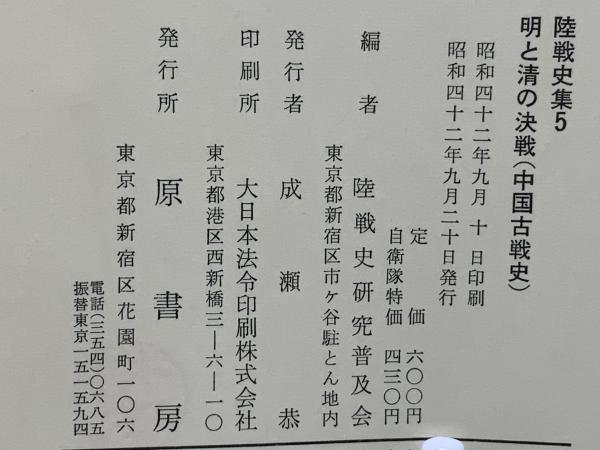 陸戦史集5
明と清の決戦(中国古戦史)
昭和四十二年九月 十 日印刷
昭和四十二年九月二十日発行
定 価 六〇〇円
自衛隊特価 四三〇円
編者 陸戦史研究普及会
東京都新宿区市ヶ谷駐とん地内
発行者 成瀬恭
印刷所 大日本法令印刷株式会社
東京都港区西新橋三―六―一〇
発行所 原書房
東京都新宿区花園町一〇六
電話(三五四)〇六八五
振替東京一五一五九四